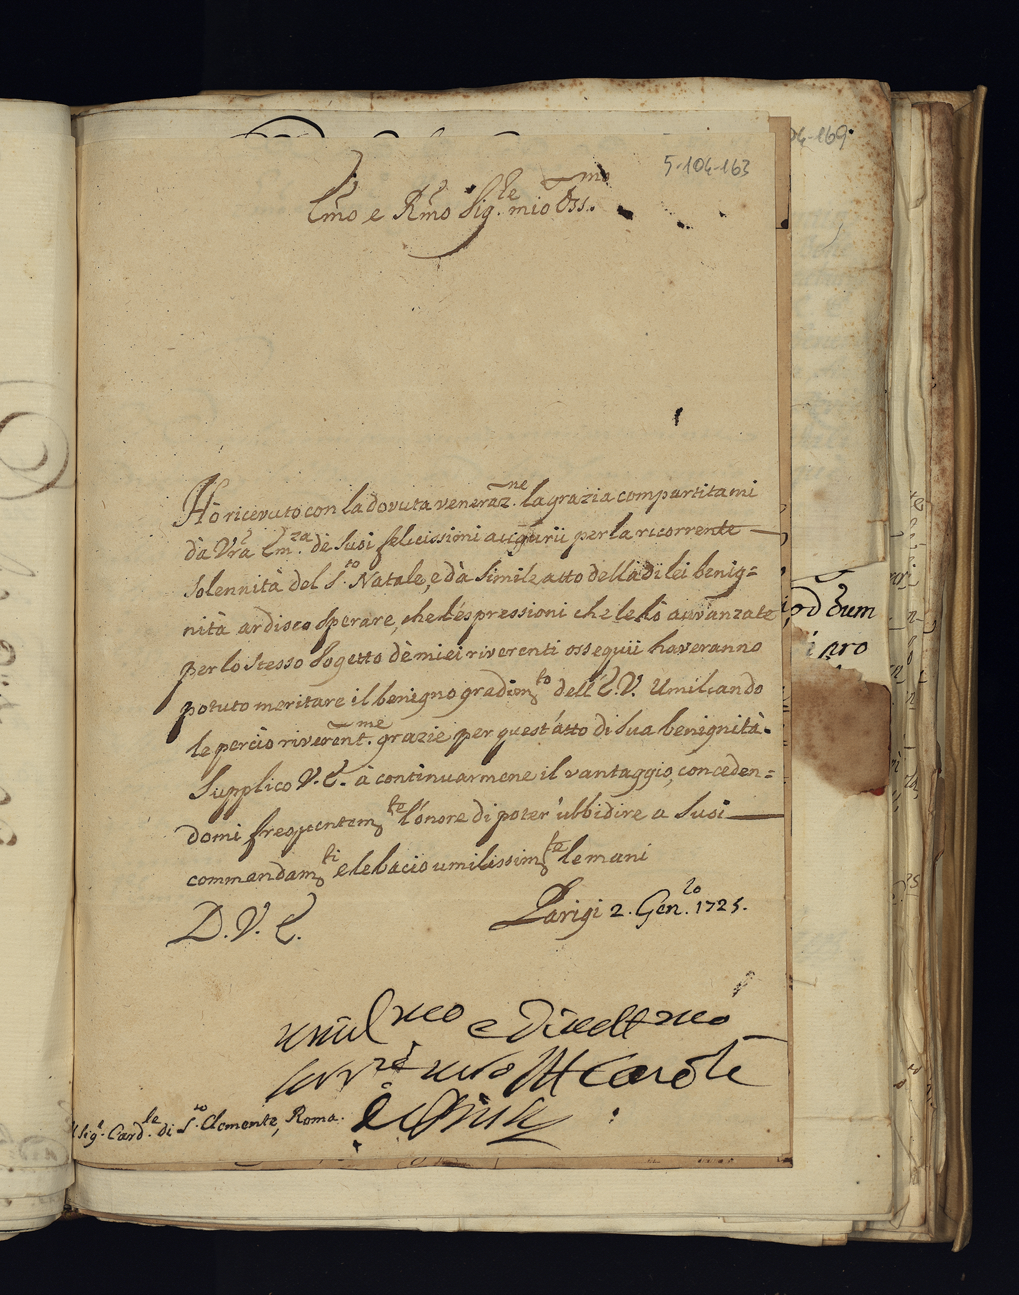 5-104-163
04-169.
Em̃o e Rm̃o Sig.re mio Oss.mo
Hò ricevuto con la dovuta veneraz.ne la grazia compartitami
dà Vrã Em.za dè suoi felicissimi augurii per la ricorrente
solennità del S.to Natale, e dà simile atto della di lei benig=
nità ardisco sperare, che l'espressioni che le hò avvanzate
per lo stesso sogetto dè miei riverenti ossequii haveranno
potuto meritare il benigno gradim.to dell'E.V. Umiliando
le perciò riverent.me grazie per quest'atto di sua benignità.
Supplico V.E. à continuarmene il vantaggio, conceden=
domi frequentem.te l'onore di poter ubbidire a suoi
commandam.ti e le bacio umilissim.te le mani
D.V.E.
Parigi 2. Gen.ro 1725.
umil.mo e
Sig.r Card.le di S.to Clemente, Roma.